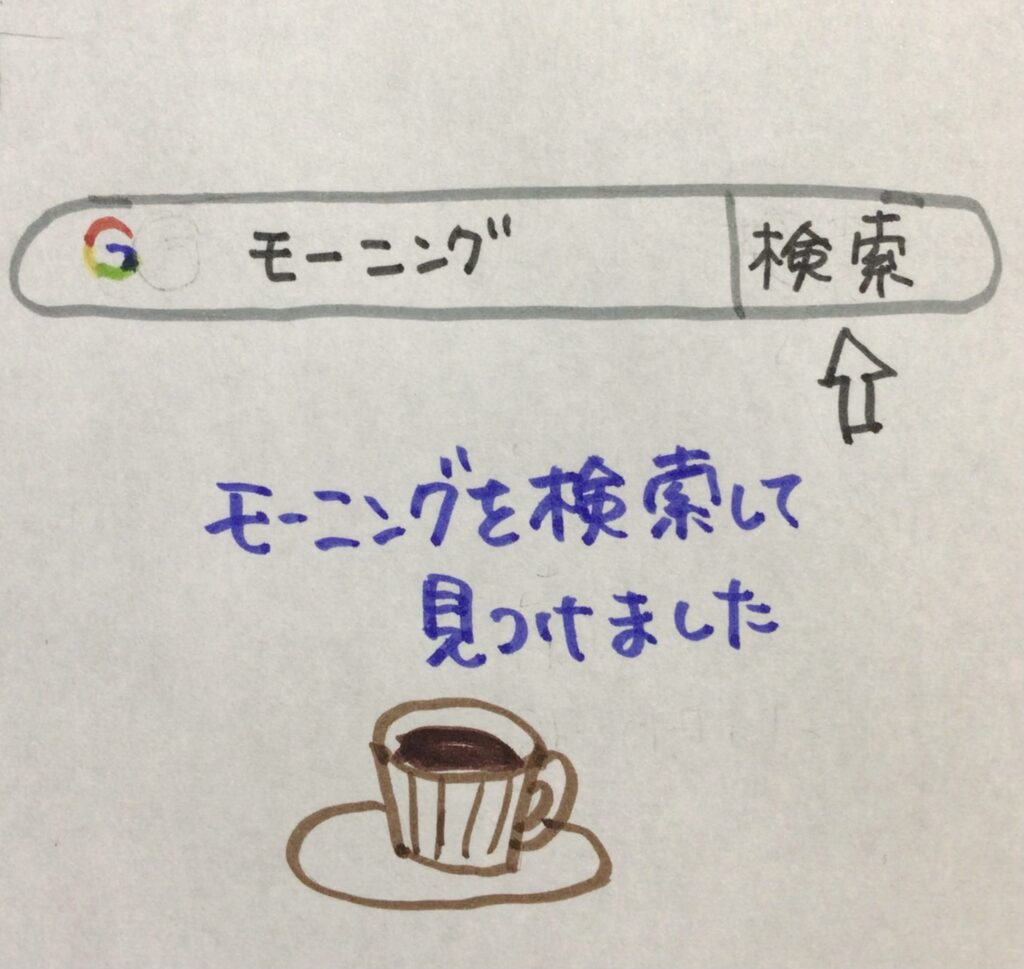 G モーニング 検索
モーニングを検索して
見つけました